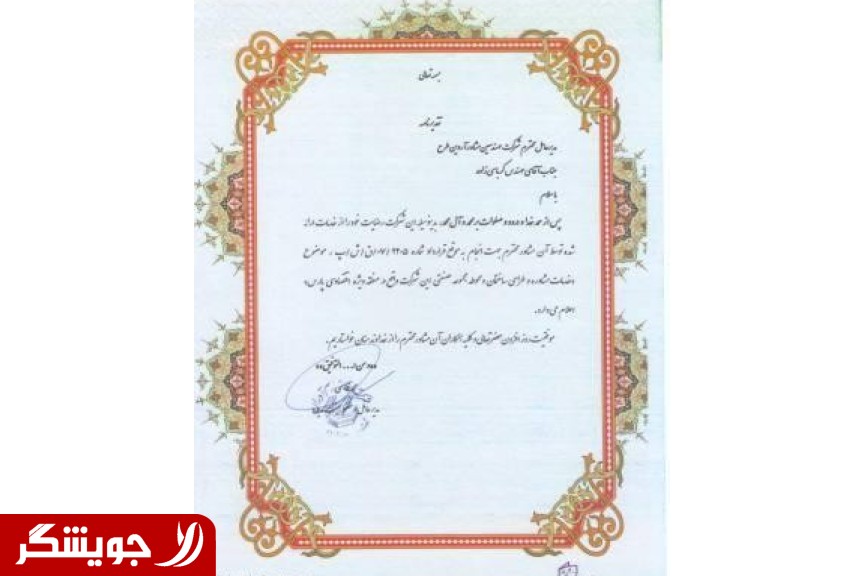 بسمه تعالی
تقدیرنامه
مدیرعامل محترم شرکت مهندسین مشاور آروین طرح
جناب آقای مهندس کرباسی زاده
با سلام
پس از حمد خدا و درود و صلوات بر محمد و آل محمد، بدینوسیله این شرکت رضایت خود را از خدمات ارائه
شده توسط آن مشاور محترم جهت انجام به موقع قرارداد شماره موضوع
«خدمات مشاوره و طراحی ساختمان و محوطه مجموعه صنعتی این شرکت واقع در منطقه ویژه اقتصادی پارس»
اعلام می دارد.
موفقیت روز افزون حضرتعالی و کلیه همکاران آن مشاور محترم را از خداوند منان خواستاریم.
ومن ا... التوفیق
مدیرعامل
جویشگر